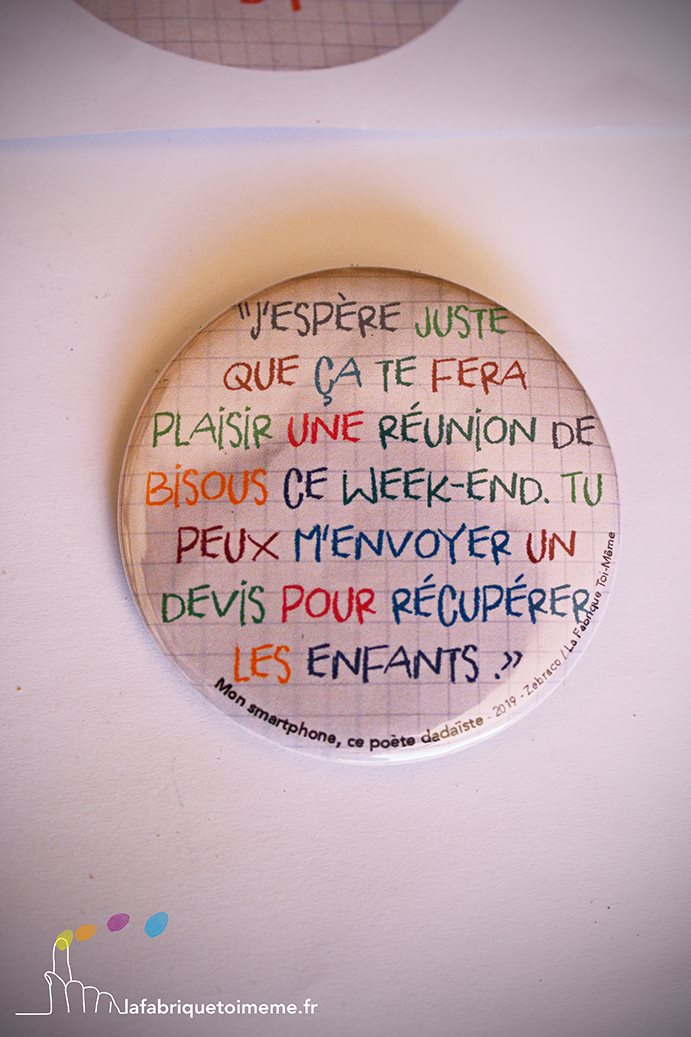 "J'ESPÈRE JUSTE
QUE ÇA TE FERA
PLAISIR UNE RÉUNION DE
BISOUS CE WEEK-END. TU
PEUX M'ENVOYER UN
DEVIS POUR RÉCUPÉRER
LES ENFANTS .»
Mon smartphone, ce poète dadaïste - 2019 - Zebraco / La Fabrique Toi-Même
lafabriquetoimeme.fr